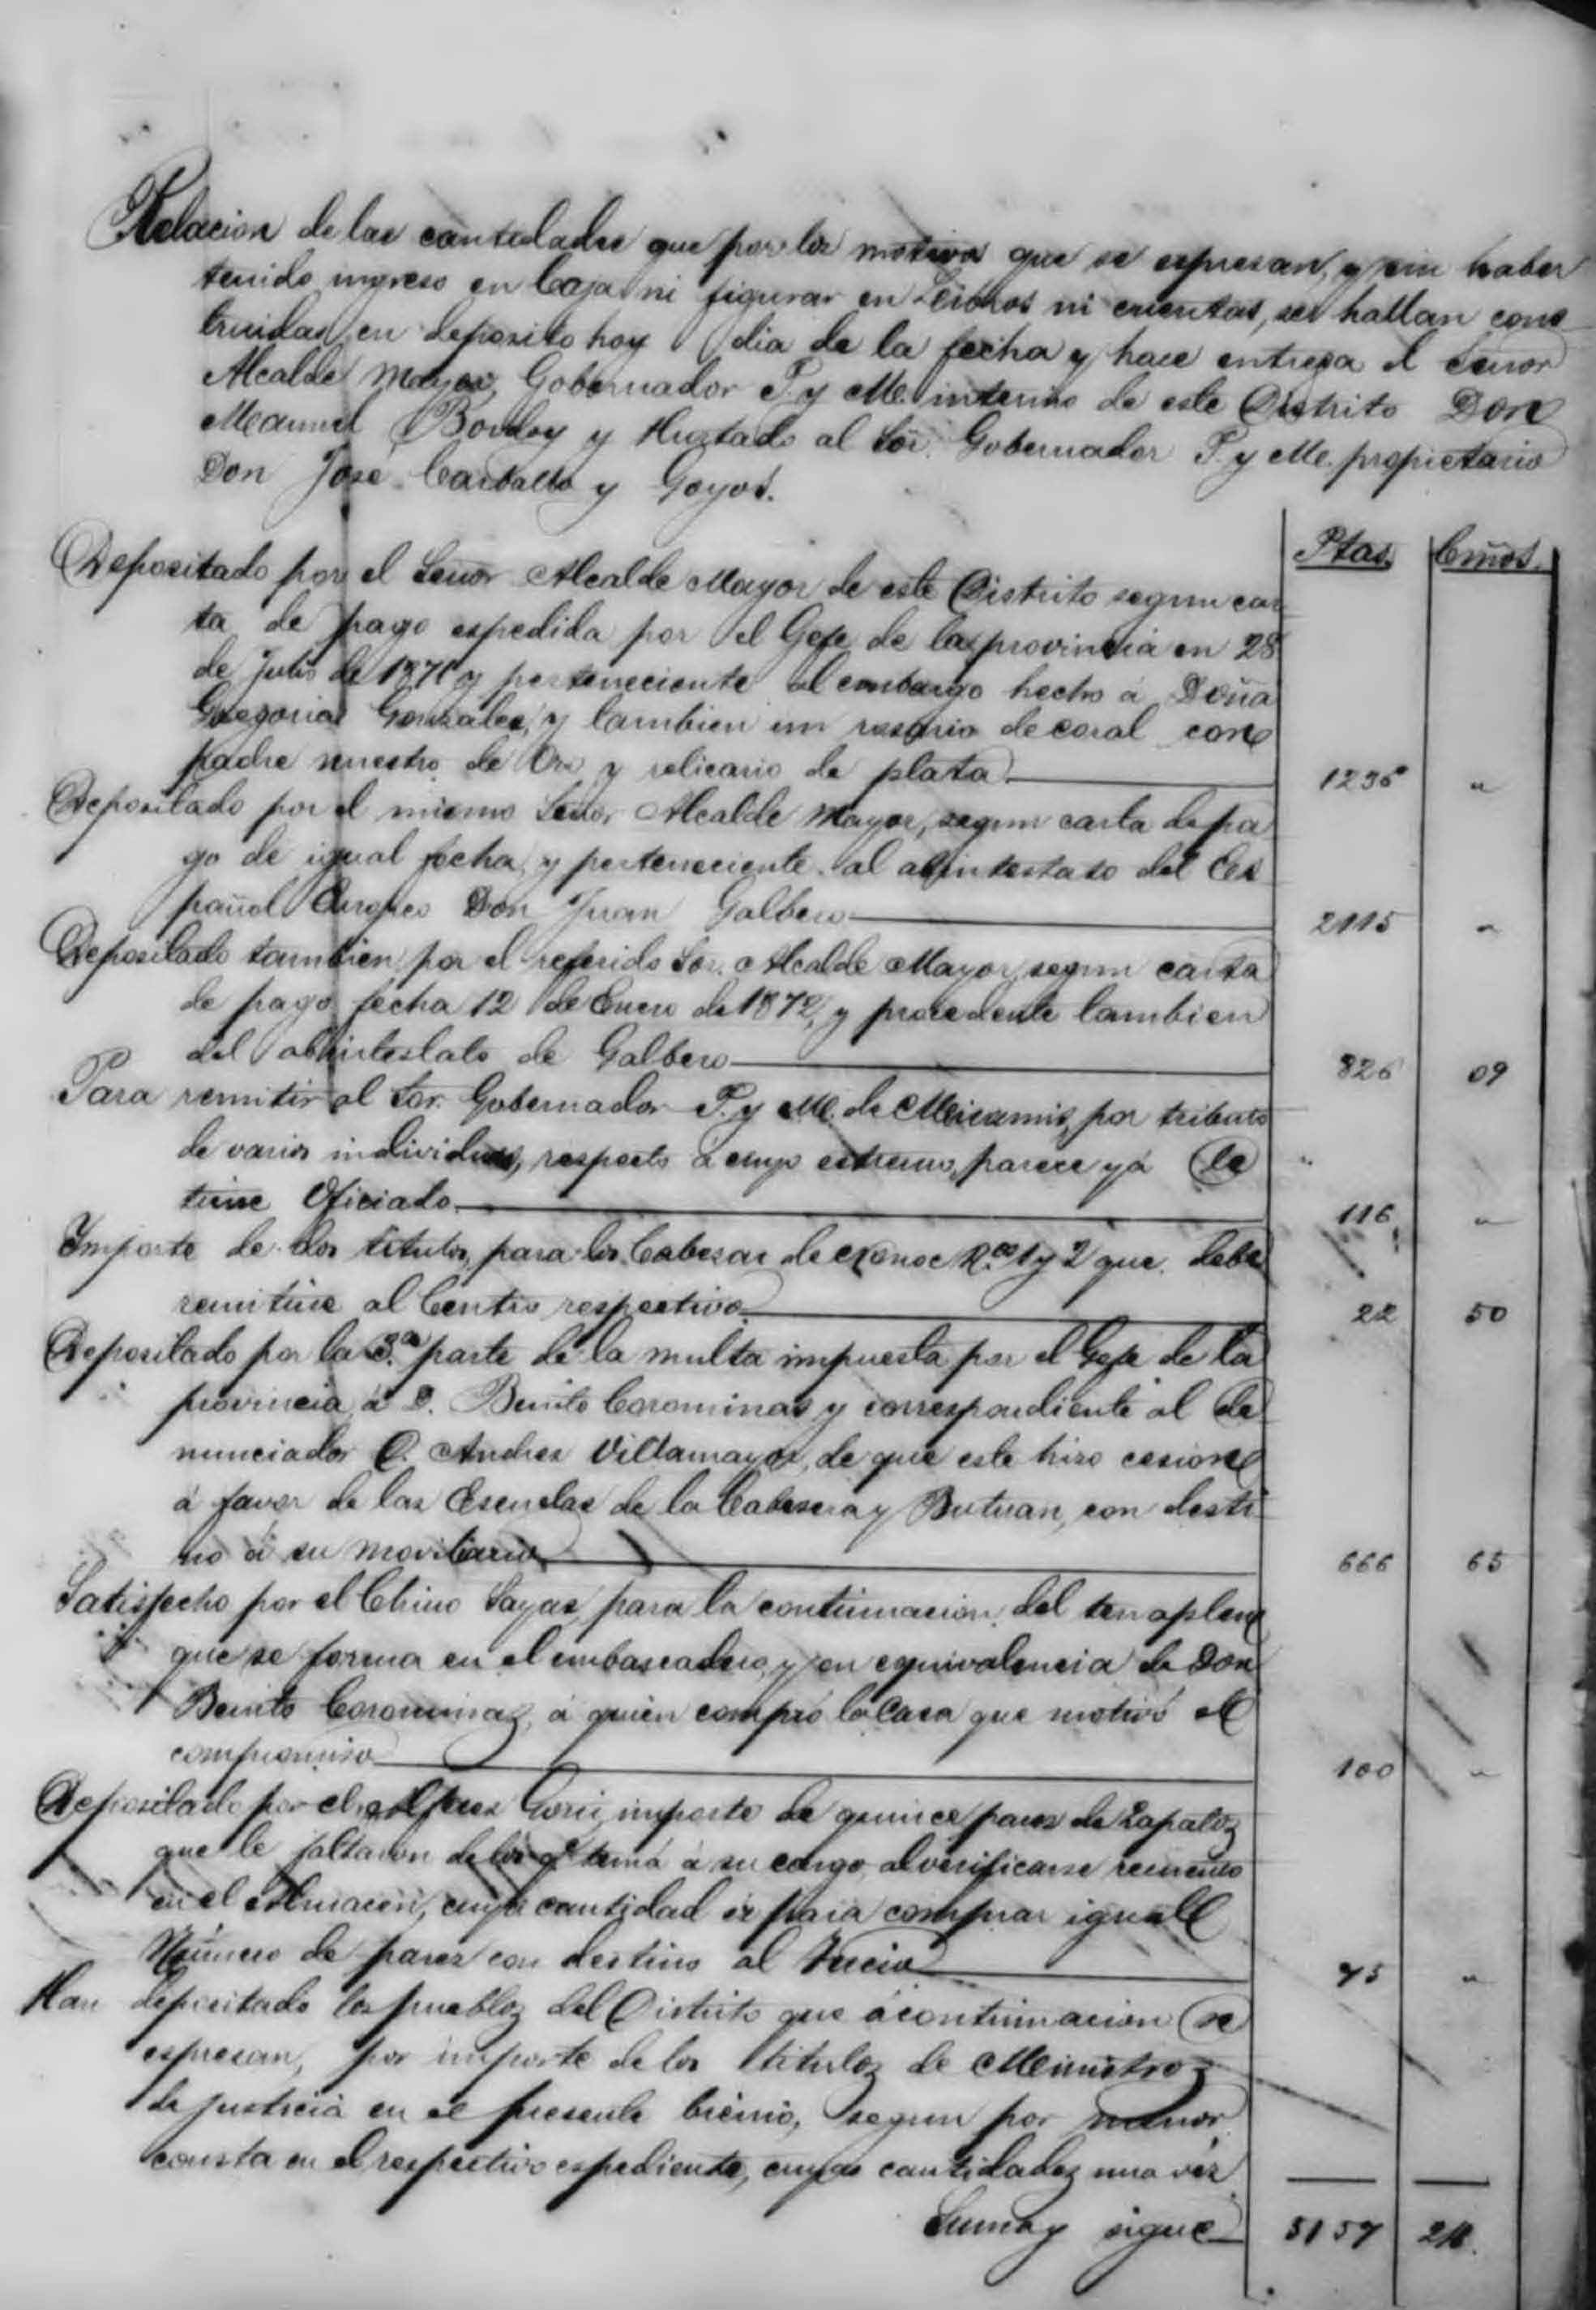 Relacion de las cantidades que por los motivos que se espresan, y sin haber
tenido ingreso en Caja ni figurar en Libros ni cuentas, se hallan cons
truidas en deposito hoy dia de la fecha y hace entrega el Señor
Alcalde Mayor, Gobernador P. y M. interino de este Distrito Don
Manuel Bordoy y Hurtado al Sor. Gobernador P. y M. propietario
Don José Carballo y Goyos.
Ptas. Cmos.
Depositado por el Señor Alcalde Mayor de este Distrito segun car
ta de pago espedida por el Gefe de la provincia en 28
de Julio de 1871 y perteneciente al embargo hecho á Doña
Gregoria Gonzales, y tambien un rosario de coral con
padre nuestro de Oro y relicario de plata 1236 "
Depositado por el mismo Señor Alcalde Mayor, segun carta de pa
go de igual fecha, y perteneciente al abintestato del Es
pañol Don Juan Galbero 2115 "
Depositado tambien por el referido Sor. Alcalde Mayor, segun carta
de pago fecha 12 de Enero de 1872, y procedente tambien
del abintestato de Galbero 826 09
Para remitir al Sor. Gobernador P. y M. de Misamis, por tributo
de varios individuos, respecto á cuyo estremo, parece yá se
tiene Oficiado 116 "
Importe de dos titulos, para los Cabezas de 1 y 2 que debe
remitirse al Centro respectivo 22 50
Depositado por la 3.ª parte de la multa impuesta por el Gefe de la
provincia, á D. Benito Corominas y correspondiente al de
nunciador D. Andres Villamayor, de que este hizo cesion
á favor de las Escuelas de la Cabesera y Butuan, con desti
no á su moviliario 666 65
Satisfecho por el Chino Sayas, para la continuacion del terraplen
que se forma en el embarcadero, y en equivalencia de Don
Benito Corominas, á quien compró la Casa que motivó el
compromiso 100 "
Depositado por el alferez importe de quince pares de Zapatos
que le faltaron de los q.e tenia á su cargo, al verificarse recuento
en el almacen, cuya cantidad es para comprar igual
Número de pares con destino al Tercio 75 "
Han depositado los pueblos del Distrito que á continuacion se
espresan, por importe de los titulos de Ministros
de justicia en el presente bienio, segun por menor
consta en el respectivo espediente, cuyas cantidades una vez
Suma y sigue 5157 24.